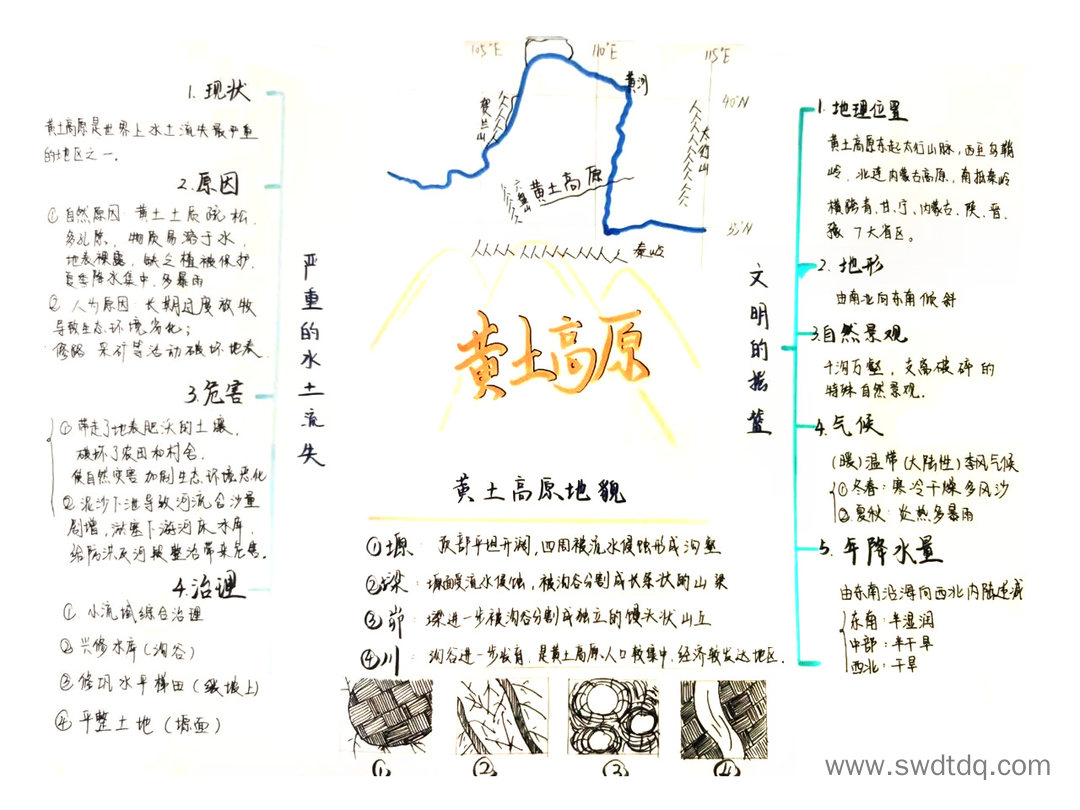 105°E
110°E
115°E
黄河
40°N
贺兰山
太行山
六盘山
黄土高原
35°N
秦岭
黄土高原
严重的水土流失
1. 现状
黄土高原是世界上水土流失最严重
的地区之一。
2. 原因
① 自然原因 黄土土质疏松,
多孔隙, 物质易溶于水,
地表裸露, 缺乏植被保护,
夏季降水集中, 多暴雨
② 人为原因: 长期过度放牧
导致生态环境劣化;
修路 采矿等活动破坏地表.
3. 危害
① 带走了地表肥沃的土壤,
破坏了农田和村舍,
使自然灾害加剧生态环境恶化
② 泥沙下泄导致河流含沙量
剧增, 淤塞下游河床水库,
给防洪及河段整治带来危害。
4. 治理
① 小流域综合治理
② 兴修水库(沟谷)
③ 修巩水平梯田(缓坡上)
④ 平整土地(塬面)
文明的摇篮
1. 地理位置
黄土高原东起太行山脉, 西至乌鞘
岭, 北连内蒙古高原, 南抵秦岭
横跨青、甘、宁、内蒙古、陕、晋、
豫 7大省区。
2. 地形
由西北向东南倾斜
3. 自然景观
千沟万壑, 支离破碎的
特殊自然景观.
4. 气候
(暖)温带(大陆性)季风气候
① 冬春: 寒冷干燥多风沙
② 夏秋: 炎热多暴雨
5. 年降水量
由东南沿海向西北内陆递减
东南: 半湿润
中部: 半干旱
西北: 干旱
黄土高原地貌
① 塬: 顶部平坦开阔, 四周被流水侵蚀形成沟壑
② 梁: 塬面受流水侵蚀, 被沟谷分割成长条状的山梁
③ 峁: 梁进一步被沟谷分割成独立的馒头状山丘
④ 川: 沟谷进一步发育, 是黄土高原人口较集中, 经济较发达地区.
①
②
③
④
www.swdtdq.com